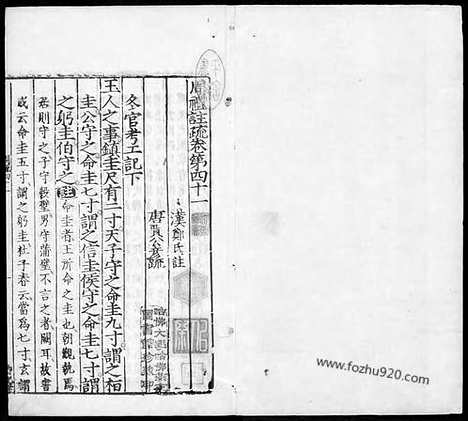 周禮註疏卷第四十一
漢鄭氏註
唐賈公彥疏
冬官考工記下
玉人之事鎮圭尺有二寸天子守之命圭九寸謂之桓
圭公守之命圭七寸謂之信圭侯守之命圭七寸謂
之躬圭伯守之註命圭者王所命之圭也朝覲執焉
若則守之子守穀璧男守蒲璧不言之者闕耳故書
或云命圭五寸謂之躬圭杜子春云當爲七寸玄謂
www.fozhu920.com